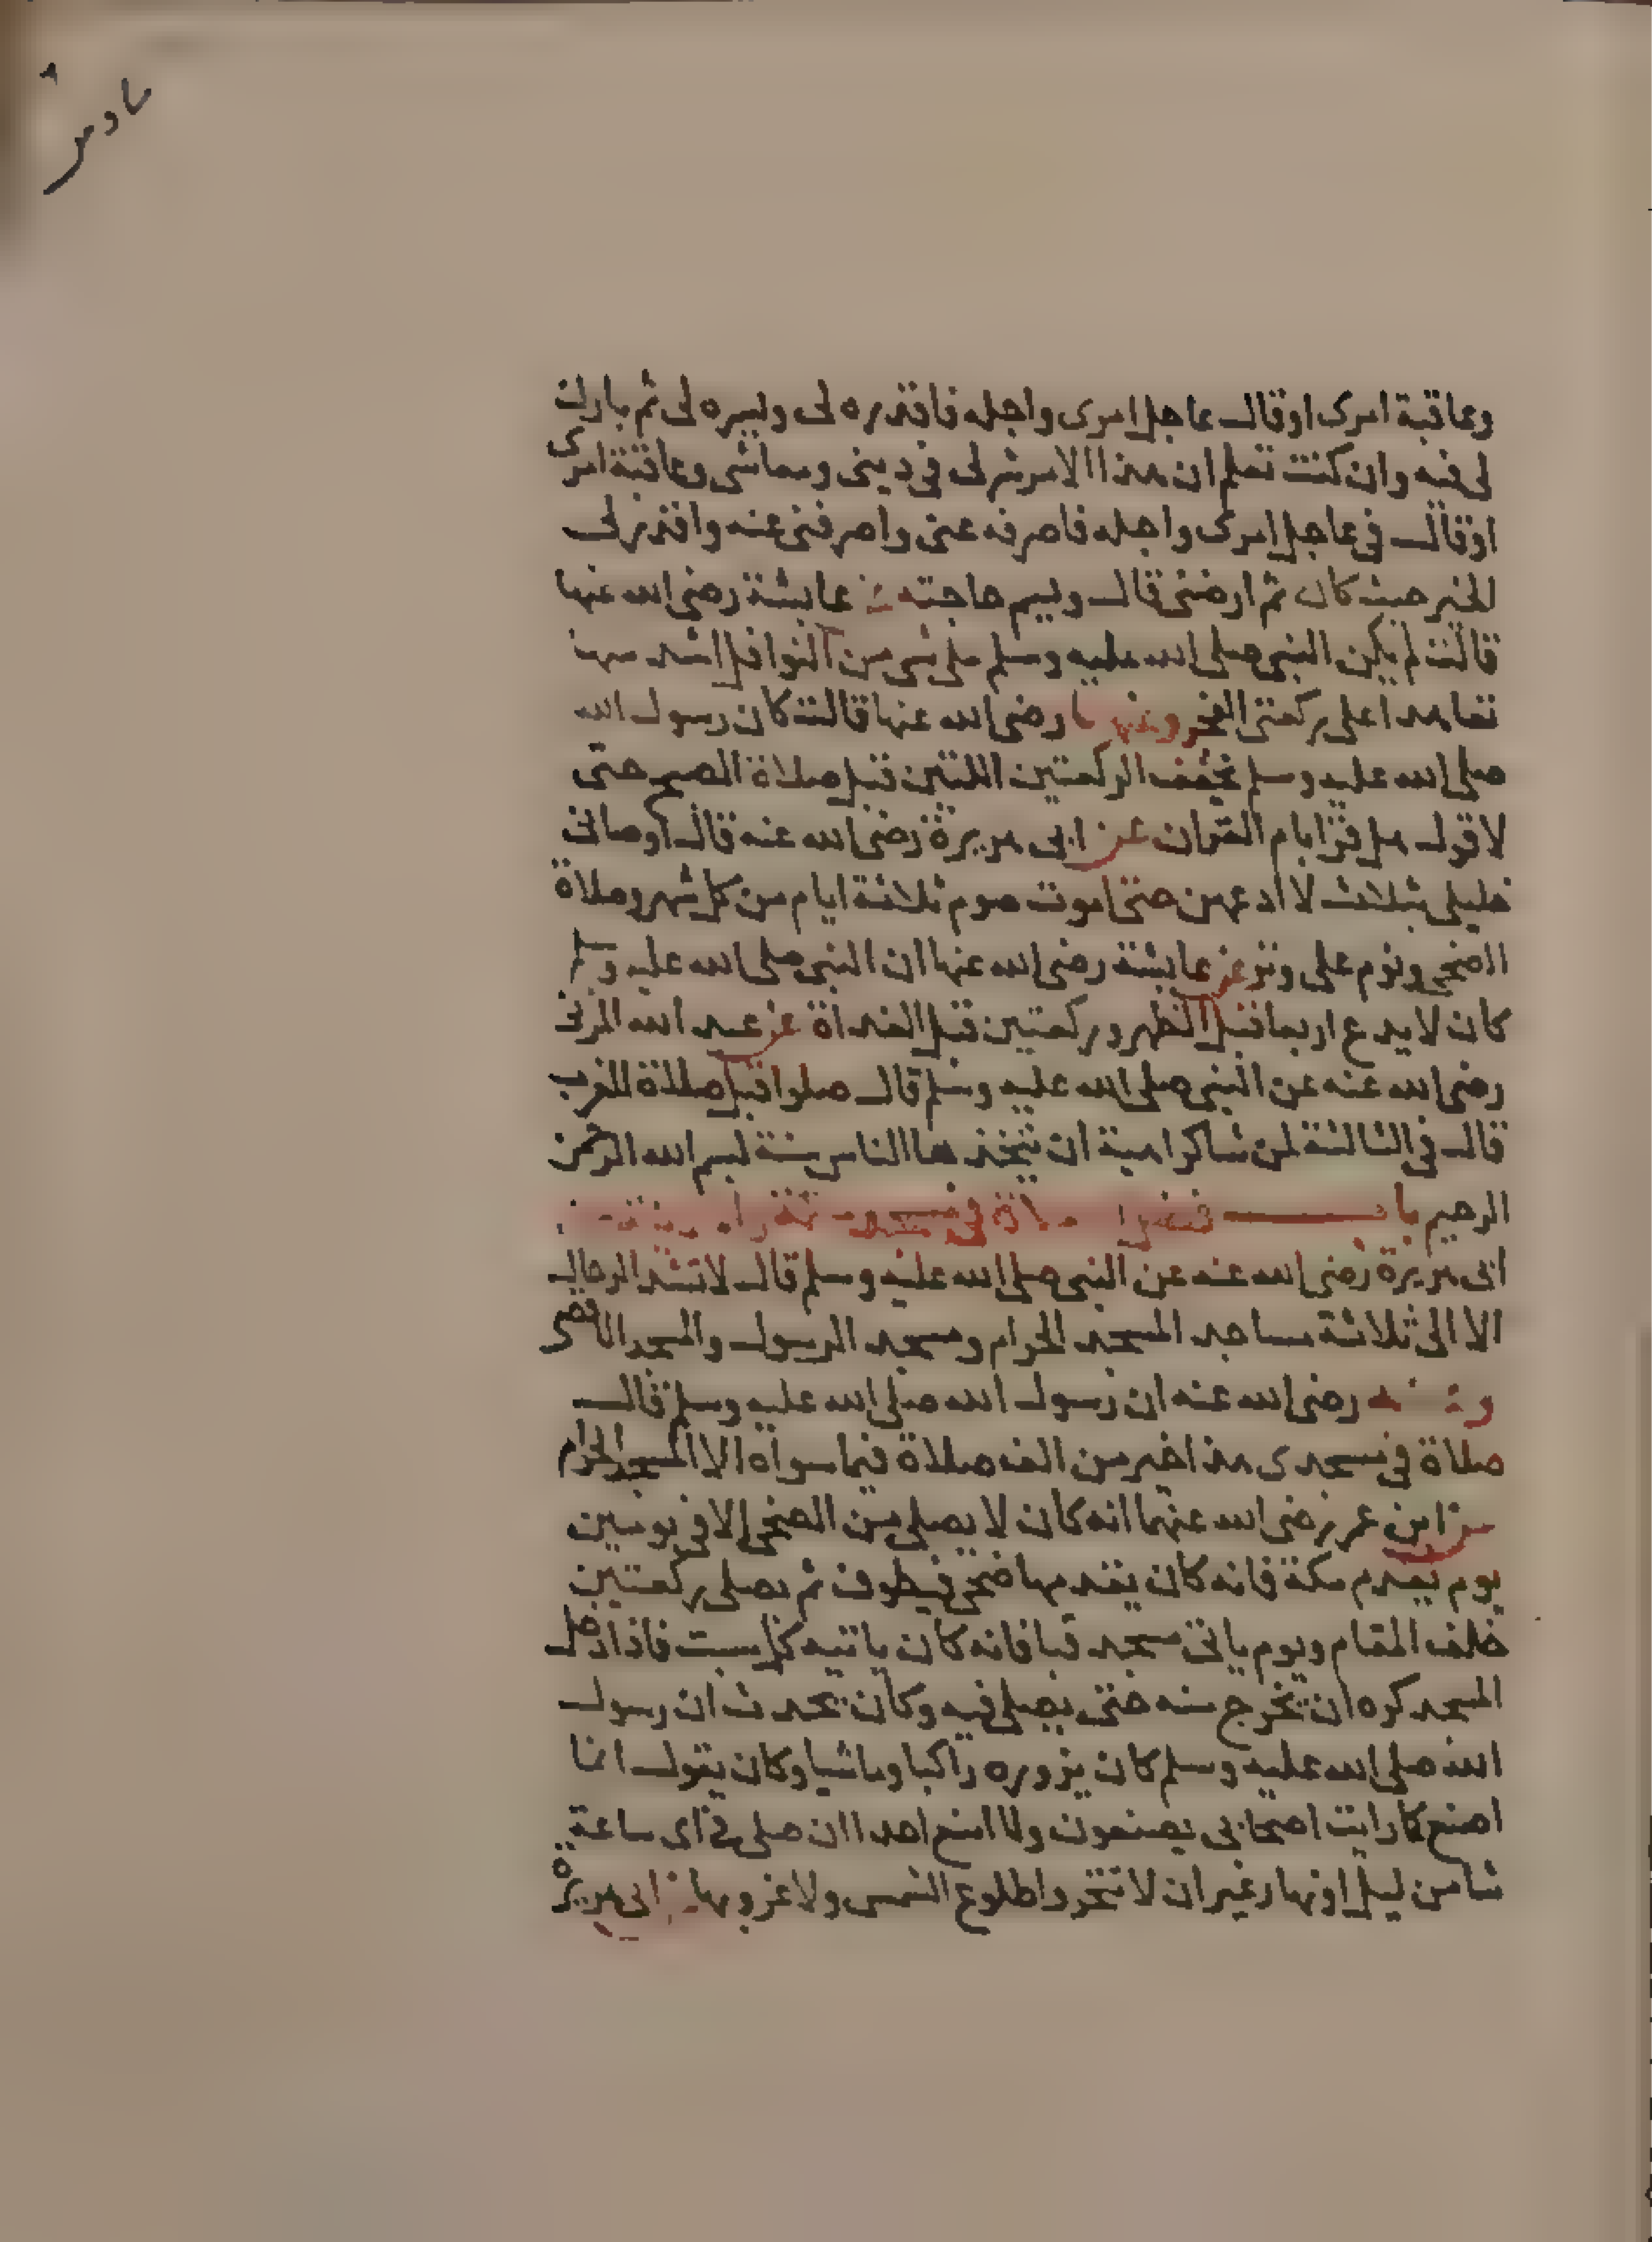 وعاقبة امرى اوقال عاجل امرى واجله فاقدره لى ويسره لى ثم بارك
لى فيه وان كنت تعلم ان هذا الامر شر لى في دينى ومعاشى وعاقبة امرى
اوقال في عاجل امرى واجله فاصرفه عنى واصرفنى عنه واقدر لى
الخير حيث كان ثم ارضنى قال ويسم حاجته عايشة رضى الله عنها
قالت لم يكن النبى صلى الله عليه وسلم على شى من النوافل اشد منه
تعاهدا على ركعتى الفجر وعنها رضى الله عنها قالت كان رسول الله
صلى الله عليه وسلم يخفف الركعتين اللتين قبل صلاة الصبح حتى
لاقول هل قرا بام القران عن ابى هريرة رضى الله عنه قال اوصانى
خليلى بثلاث لا ادعهن حتى اموت صوم ثلاثة ايام من كل شهر وصلاة
الضحى ونوم على وتر عن عايشة رضى الله عنها ان النبى صلى الله عليه وسلم
كان لا يدع اربعا قبل الظهر وركعتين قبل الغداة عن عبد الله المزنى
رضى الله عنه عن النبى صلى الله عليه وسلم قال صلوا قبل صلاة المغرب
قال في الثالثة لمن شا كراهية ان يتخذها الناس سنة بسم الله الرحمن
الرحيم باب فضل الصلاة في مسجد
ابى هريرة رضى الله عنه عن النبى صلى الله عليه وسلم قال لا تشد الرحال
الا الى ثلاثة مساجد المسجد الحرام ومسجد الرسول والمسجد الاقصى
وعنه رضى الله عنه ان رسول الله صلى الله عليه وسلم قال
صلاة في مسجدى هذا خير من الف صلاة فيما سواه الا المسجد الحرام
عن ابن عمر رضى الله عنهما انه كان لا يصلى من الضحى الا في يومين
يوم يقدم مكة فانه كان يقدمها ضحى فيطوف ثم يصلى ركعتين
خلف المقام ويوم ياتى مسجد قبا فانه كان ياتيه كل سبت فاذا دخل
المسجد كره ان يخرج منه حتى يصلى فيه وكان يحدث ان رسول
الله صلى الله عليه وسلم كان يزوره راكبا وماشيا وكان يقول انما
اصنع كما رايت اصحابى يصنعون ولا امنع احدا ان صلى في اى ساعة
شا من ليل او نهار غير ان لا تتحروا طلوع الشمس ولا غروبها عن ابى هريرة